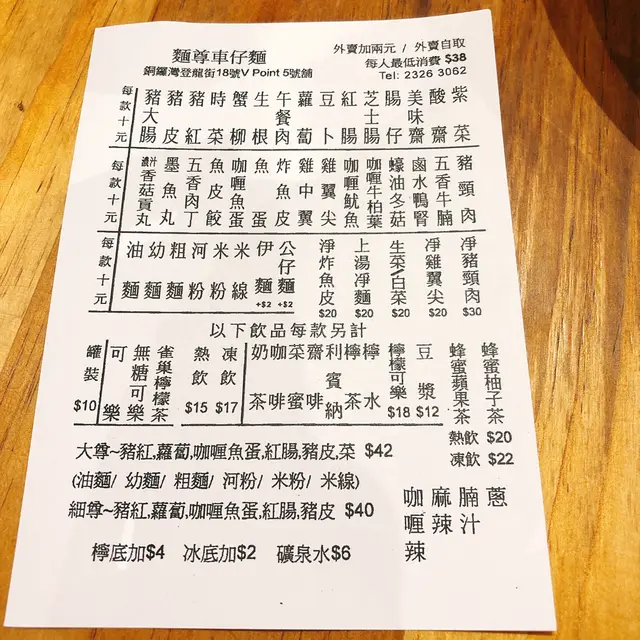 麵尊車仔麵
銅鑼灣登龍街18號V Point 5號舖
外賣加兩元 / 外賣自取
每人最低消費 $38
Tel: 2326 3062
每款十元
豬大腸
豬皮
豬紅
時菜
蟹柳
生根
午餐肉
蘿蔔
豆卜
紅腸
芝士腸
腸仔
美味齋
酸齋
紫菜
每款十元
濃汁香菇貢丸
墨魚丸
五香肉丁
魚皮餃
咖喱魚蛋
魚蛋
炸魚皮
雞中翼
雞翼尖
咖喱魷魚
咖喱牛柏葉
蠔油冬菇
鹵水鴨腎
五香牛腩
豬頸肉
每款十元
油麵
幼麵
粗麵
河粉
米粉
米線
伊麵 +$2
公仔麵 +$2
淨炸魚皮 $20
上湯淨麵 $20
生菜/白菜 $20
淨雞翼尖 $20
淨豬頸肉 $30
以下飲品每款另計
罐裝 $10
可樂
無糖可樂
雀巢檸檬茶
熱飲 $15
凍飲 $17
奶茶
咖啡
菜蜜
齋啡
利賓納
檸茶
檸水
檸檬可樂 $18
豆漿 $12
蜂蜜蘋果茶
蜂蜜柚子茶
熱飲 $20
凍飲 $22
大尊~豬紅,蘿蔔,咖喱魚蛋,紅腸,豬皮,菜 $42
(油麵/ 幼麵/ 粗麵/ 河粉/ 米粉/ 米線)
細尊~豬紅,蘿蔔,咖喱魚蛋,紅腸,豬皮 $40
咖喱辣
麻辣
腩汁
蔥
檸底加$4 冰底加$2 礦泉水$6